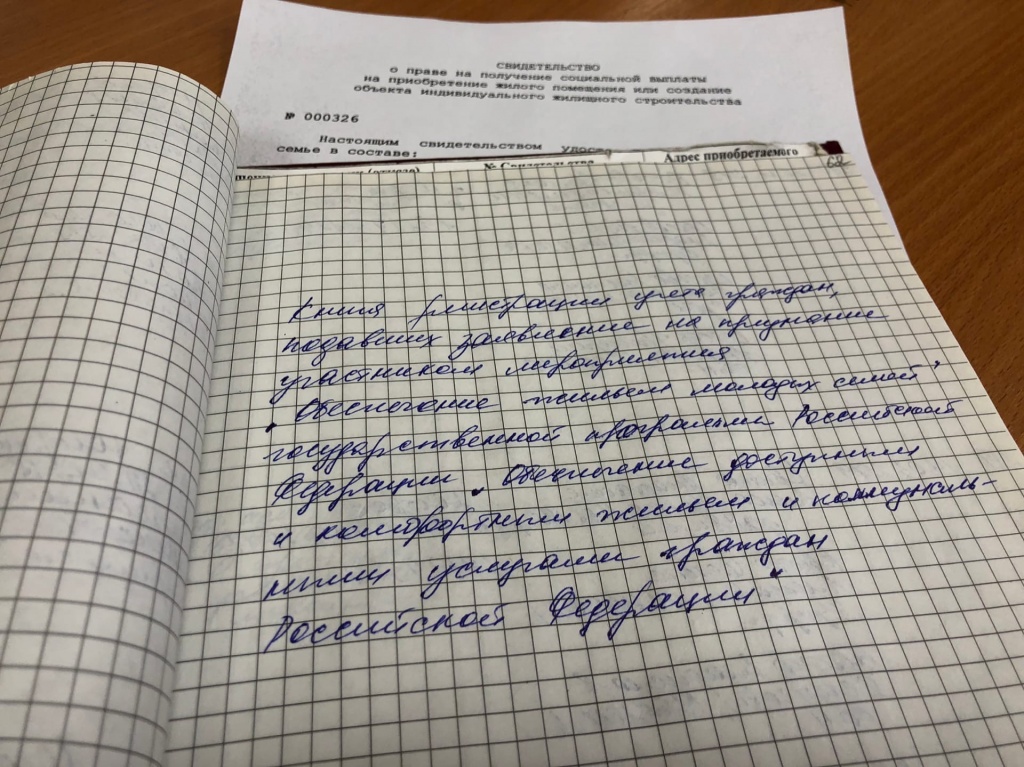 СВИДЕТЕЛЬСТВО
о праве на получение социальной выплаты
на приобретение жилого помещения или создание
объекта индивидуального жилищного строительства
№ 000326
Настоящим свидетельством удосто
семье в составе:
№ Свидетельства
Адрес приобретаемого
62
Книга регистрации учета граждан,
подавших заявление на признание
участником мероприятия
"Обеспечение жильем молодых семей"
государственной программы Российской
Федерации "Обеспечение доступным
и комфортным жильем и коммуналь-
ными услугами граждан
Российской Федерации"